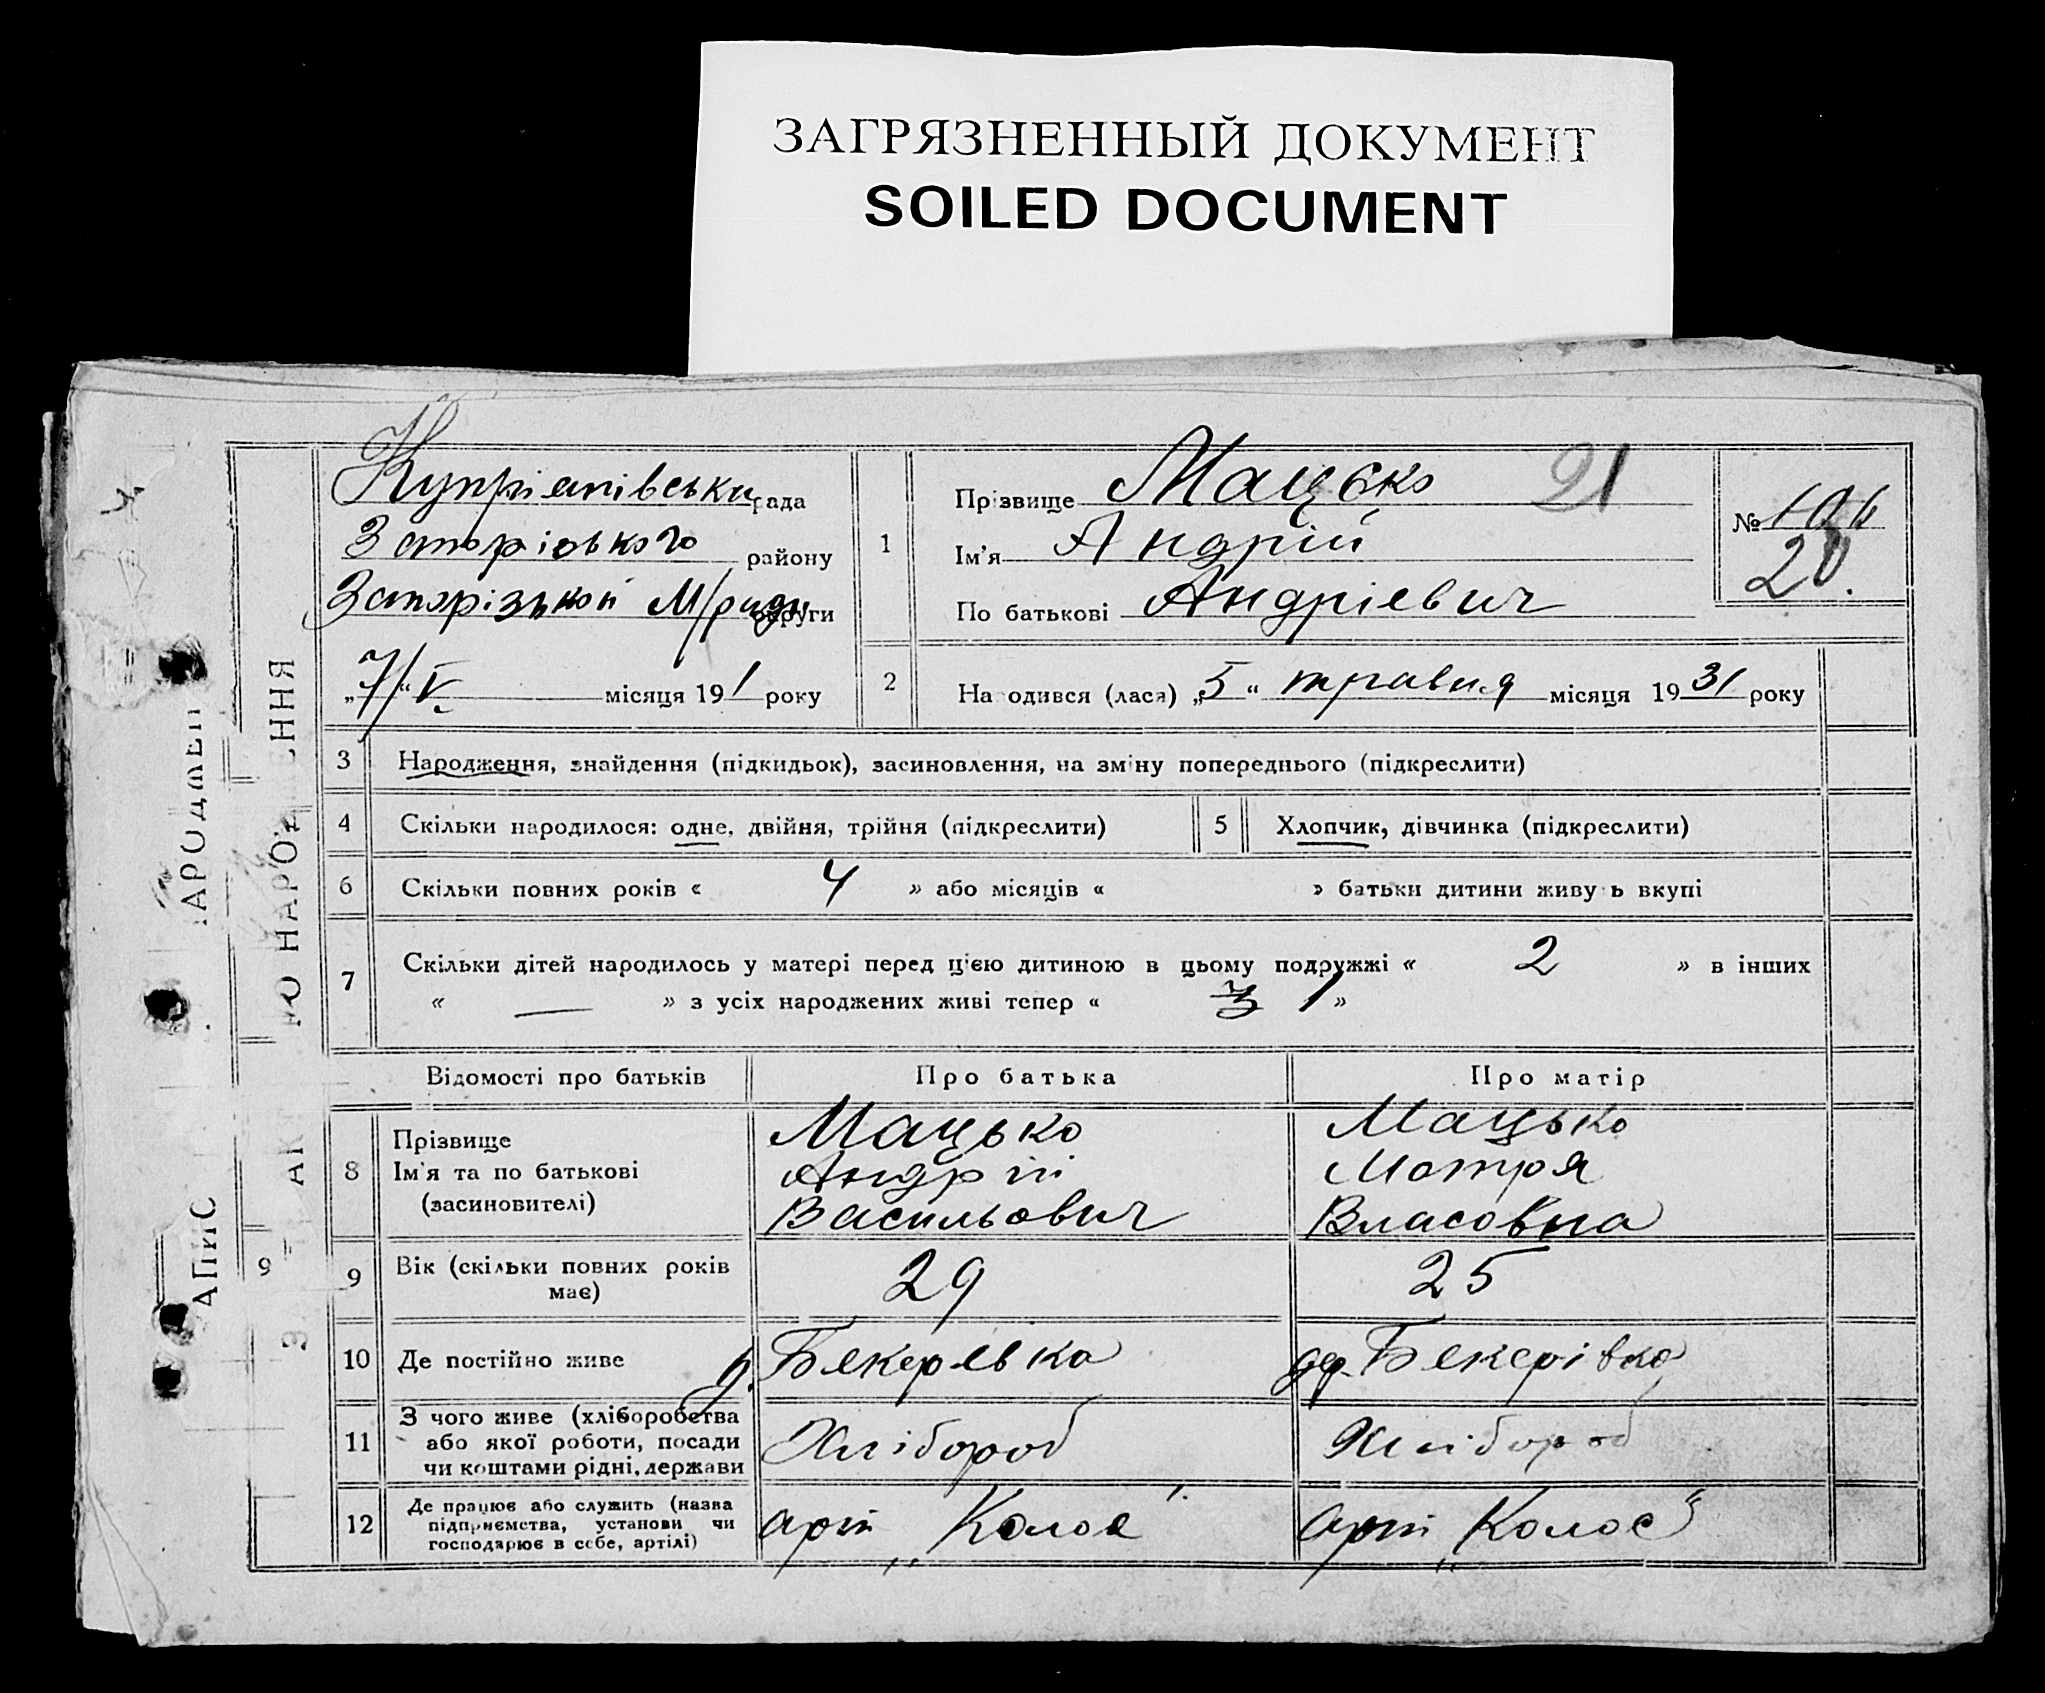 ЗАГРЯЗНЕННЫЙ ДОКУМЕНТ
SOILED DOCUMENT
Купріянівська рада
Запорізького району
Запорізької М/ради округи
„7/“ V. місяця 191 року
1
Прізвище Мацько 21
Ім'я Андрій
По батькові Андрієвич
№
20.
2
Народився (лася) „5“ травня місяця 1931 року
3 Народження, знайдення (підкидьок), засиновлення, на зміну попереднього (підкреслити)
4 Скільки народилося: одне, двійня, трійня (підкреслити) 5 Хлопчик, дівчинка (підкреслити)
6 Скільки повних років « 4 » або місяців « » батьки дитини живуть вкупі
7 Скільки дітей народилось у матері перед цією дитиною в цьому подружжі « 2 » в інших
« — » з усіх народжених живі тепер « 3 1 »
Відомості про батьків Про батька Про матір
8 Прізвище Мацько Мацько
Ім'я та по батькові Андрій Мотря
(засиновителі) Васильович Власовна
9 9 Вік (скільки повних років має) 29 25
10 Де постійно живе д. Бекеревка дер. Бекерівка
11 З чого живе (хліборобства
або якої роботи, посади
чи коштами рідні, держави Хлібороб Хлібороб
12 Де працює або служить (назва
підприємства, установи чи
господарює в себе, артілі) арт „Колос“ арт „Колос“